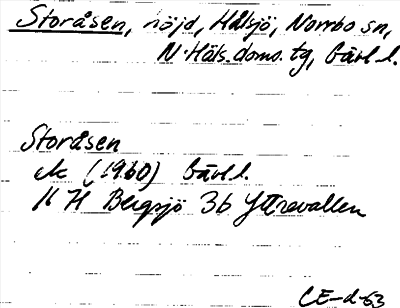 Storåsen, höjd, Hållsjö, Norrbo sn,
N. Häls. doms. tg, Gävl. l.
Storåsen
ek (1960) Gävl. l.
16 H Bergsjö 3b Yttrevallen
CE-d-63